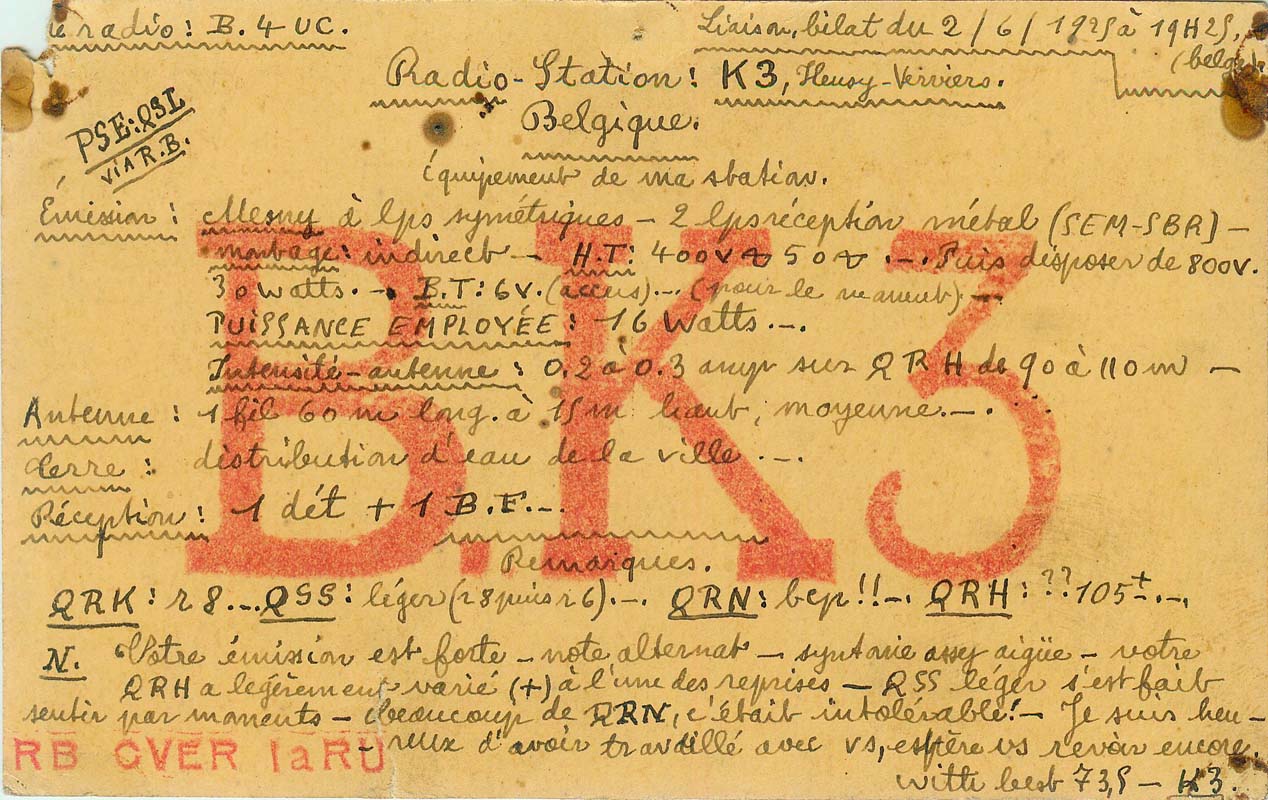 radio: B. 4 UC.
Liaison, bilat du 2/6/1925 à 19H25,
(belge).
Radio-Station: K3, Heusy-Verviers.
Belgique.
PSE: QSL
viA R.B.
Équipement de ma station.
Émission: Mesny à lps symétriques – 2 lps réception métal (SEM-SBR) –
montage: indirect – H.T: 400v ~ 50 ~ .-. Puis disposer de 800v.
30 watts. -. B.T: 6v. (accus) ... (pour le moment).-
PUISSANCE EMPLOYÉE: 16 Watts.-.
Intensité-antenne: 0.2 à 0.3 amp sur QRH de 90 à 110 m –
Antenne: 1 fil 60 m long. à 15 m haut, moyenne.-.
Terre: distribution d'eau de la ville.-.
Réception: 1 dét + 1 B.F.-.
B.K3
Remarques.
QRK: r8... QSS: léger (r8 puis r6).-. QRN: bcp!!-. QRH: ?? 105±.-.
N. Votre émission est forte – note alternat – syntonie assez aigüe – votre
QRH a légèrement varié (+) à l'une des reprises – QSS léger s'est fait
sentir par moments – beaucoup de QRN, c'était intolérable! – Je suis heu-
-reux d'avoir travaillé avec vs, espère vs revoir encore.
RB CVER 1aRU
with best 73,s – K3.